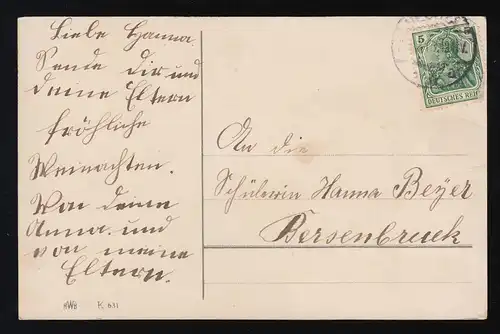 Liebe Hanna.
Sende dir und
deine Eltern
fröhliche
Weinachten.
Von deine
Anna. und
von meine
Eltern.
5
DEUTSCHES REICH
An die
Schülerin Hanna Beyer
Bersenbruck
HWB K. 631